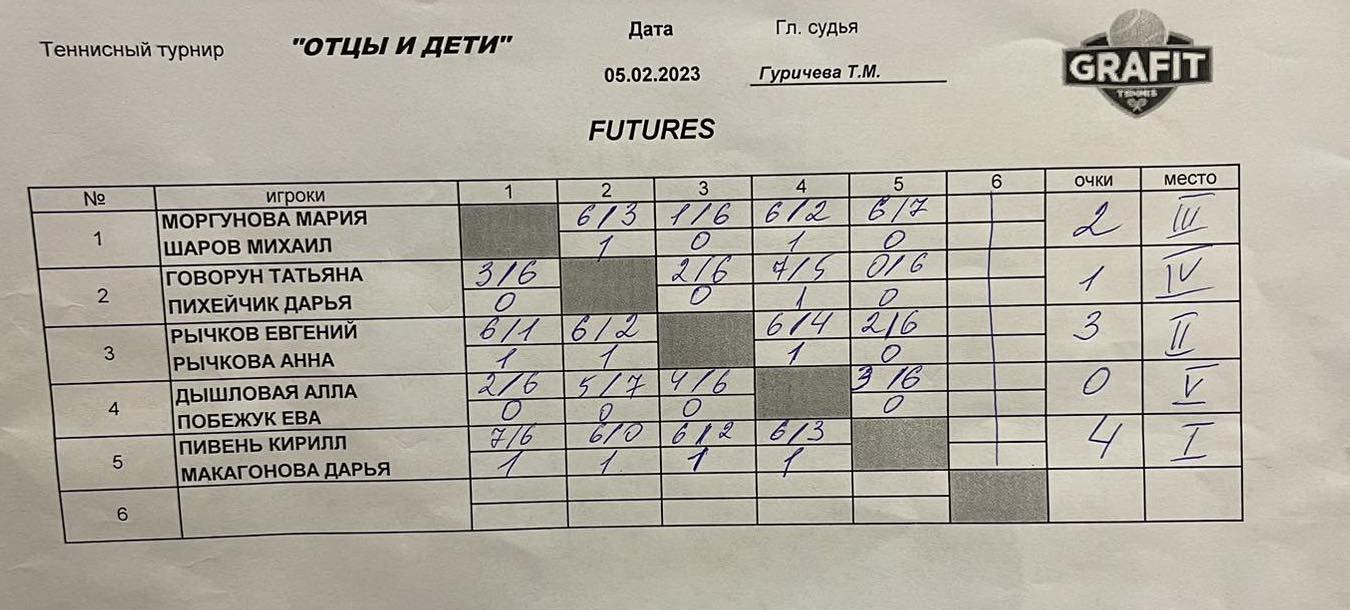 Теннисный турнир "ОТЦЫ И ДЕТИ" Дата Гл. судья
05.02.2023 Гуричева Т.М.
GRAFIT
TENNIS
FUTURES
№ игроки 1 2 3 4 5 6 очки место
1 МОРГУНОВА МАРИЯ 6/3 1/6 6/2 6/7 2 III
ШАРОВ МИХАИЛ 1 0 1 0
2 ГОВОРУН ТАТЬЯНА 3/6 2/6 7/5 0/6 1 IV
ПИХЕЙЧИК ДАРЬЯ 0 0 1 0
3 РЫЧКОВ ЕВГЕНИЙ 6/1 6/2 6/4 2/6 3 II
РЫЧКОВА АННА 1 1 1 0
4 ДЫШЛОВАЯ АЛЛА 2/6 5/7 4/6 3/6 0 V
ПОБЕЖУК ЕВА 0 0 0 0
5 ПИВЕНЬ КИРИЛЛ 7/6 6/0 6/2 6/3 4 I
МАКАГОНОВА ДАРЬЯ 1 1 1 1
6